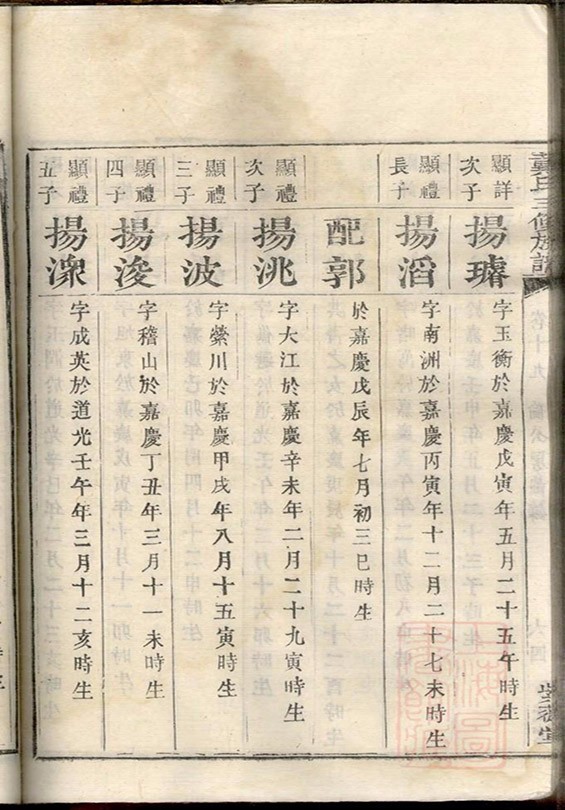 顯詳次子
揚璿
字玉衡於嘉慶戊寅年五月二十五午時生
顯禮長子
揚滔
字南洲於嘉慶丙寅年十二月二十七未時生
配郭
於嘉慶戊辰年七月初三巳時生
顯禮次子
揚洮
字大江於嘉慶辛未年二月二十九寅時生
顯禮三子
揚波
字縈川於嘉慶甲戌年八月十五寅時生
顯禮四子
揚浚
字稽山於嘉慶丁丑年三月十一未時生
顯禮五子
揚濴
字成英於道光壬午年三月十二亥時生
卷十九
六四